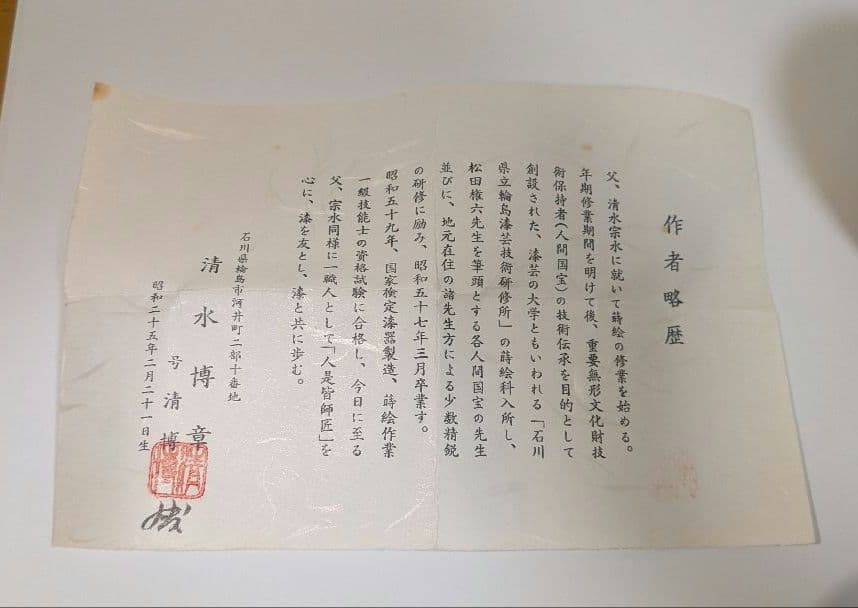 作者略歴
父、清水宗水に就いて蒔絵の修業を始める。
年期修業期間を明けて後、重要無形文化財技
術保持者(人間国宝)の技術伝承を目的として
創設された、漆芸の大学ともいわれる「石川
県立輪島漆芸技術研修所」の蒔絵科入所し、
松田権六先生を筆頭とする各人間国宝の先生
並びに、地元在住の諸先生方による少数精鋭
の研修に励み、昭和五十七年三月卒業す。
昭和五十九年、国家検定漆器製造、蒔絵作業
一級技能士の資格試験に合格し、今日に至る
父、宗水同様に一職人として「人是皆師匠」を
心に、漆を友とし、漆と共に歩む。
石川県輪島市河井町二部十番地
清水博章
号清博
昭和二十五年二月二十一日生